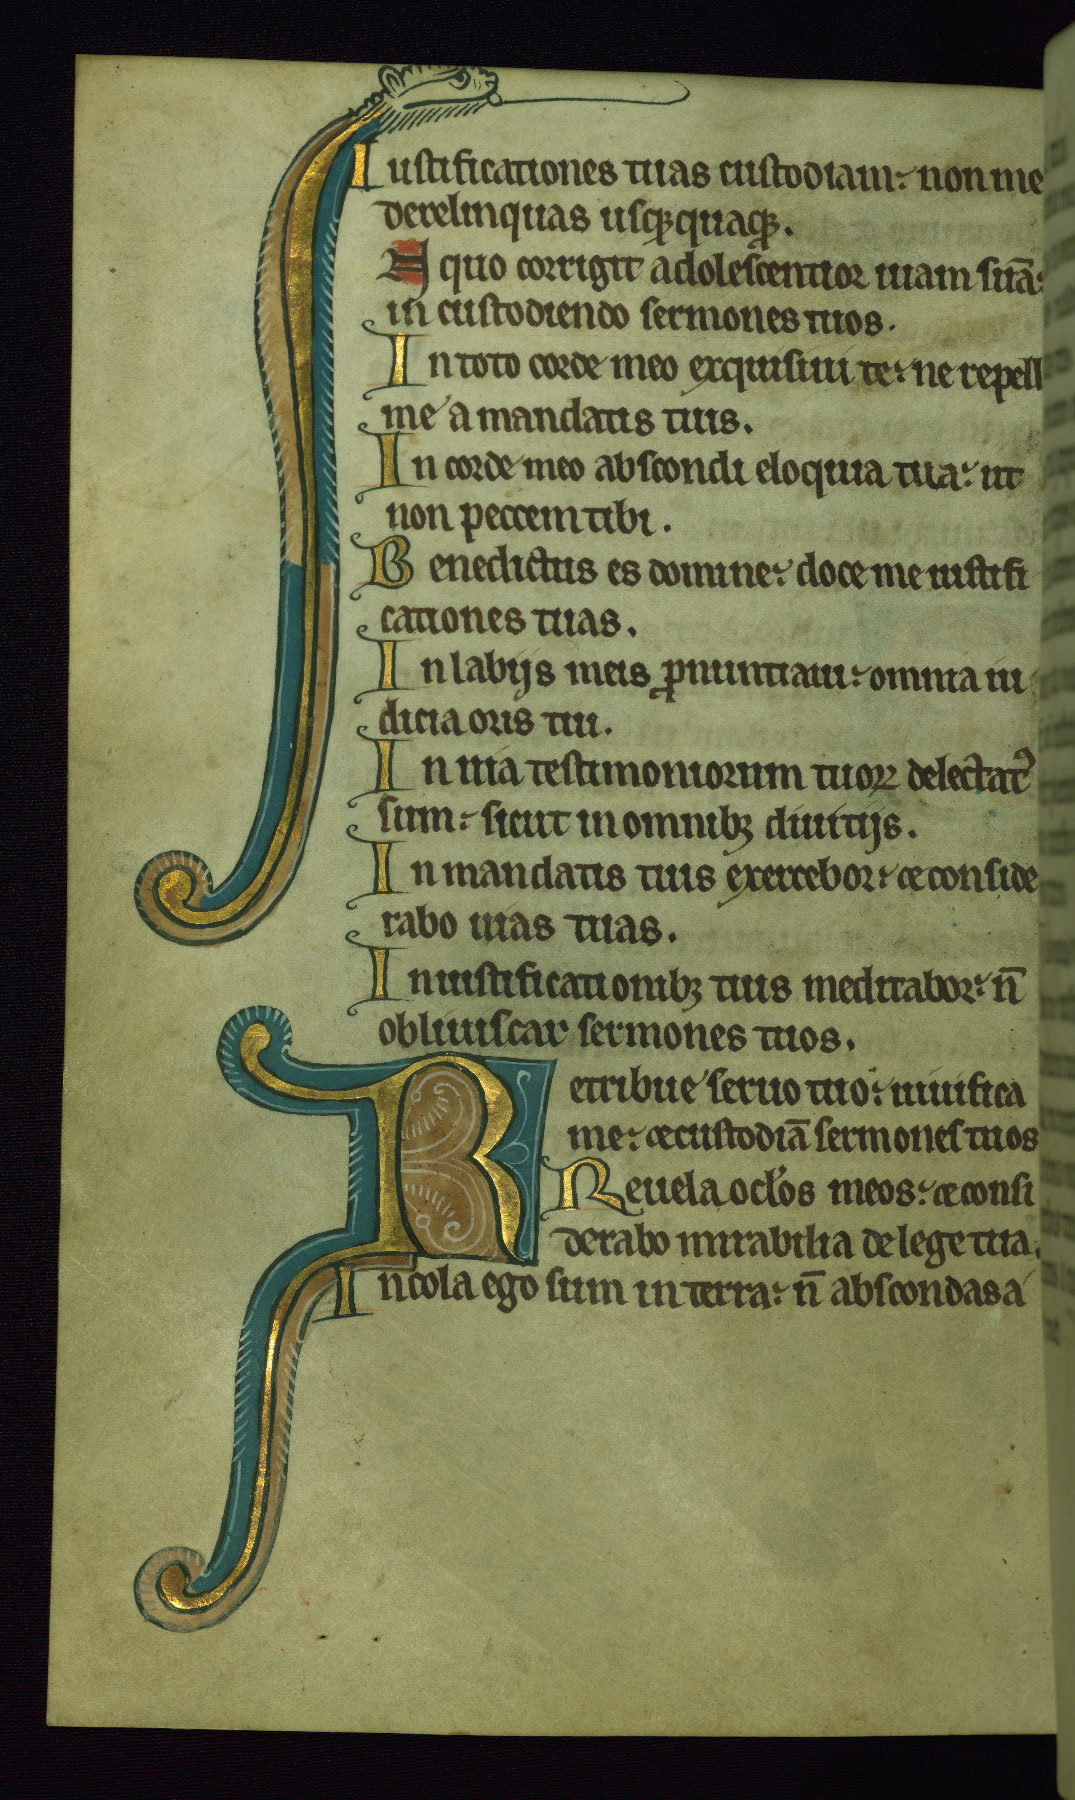 Iustificationes tuas custodiam: non me
derelinquas usq̨quaq̨.
In quo corrigit adolescentior uiam suā:
in custodiendo sermones tuos.
In toto corde meo exquisiui te: ne repell
me a mandatis tuis.
In corde meo abscondi eloquia tua: ut
non peccem tibi.
Benedictus es domine: doce me iustifi
cationes tuas.
In labijs meis ꝓnuntiaui: omnia iu
dicia oris tui.
In uia testimoniorum tuoꝝ delectat᷒
sum: sicut in omnibꝫ diuitijs.
In mandatis tuis exercebor: et conside
rabo uias tuas.
In iustificationibꝫ tuis meditabor: n̄
obliuiscar sermones tuos.
Retribue seruo tuo: uiuifica
me: et custodiā sermones tuos
Reuela oclo̓s meos: et consi
derabo mirabilia de lege tua.
Incola ego sum in terra: n̄ abscondas a